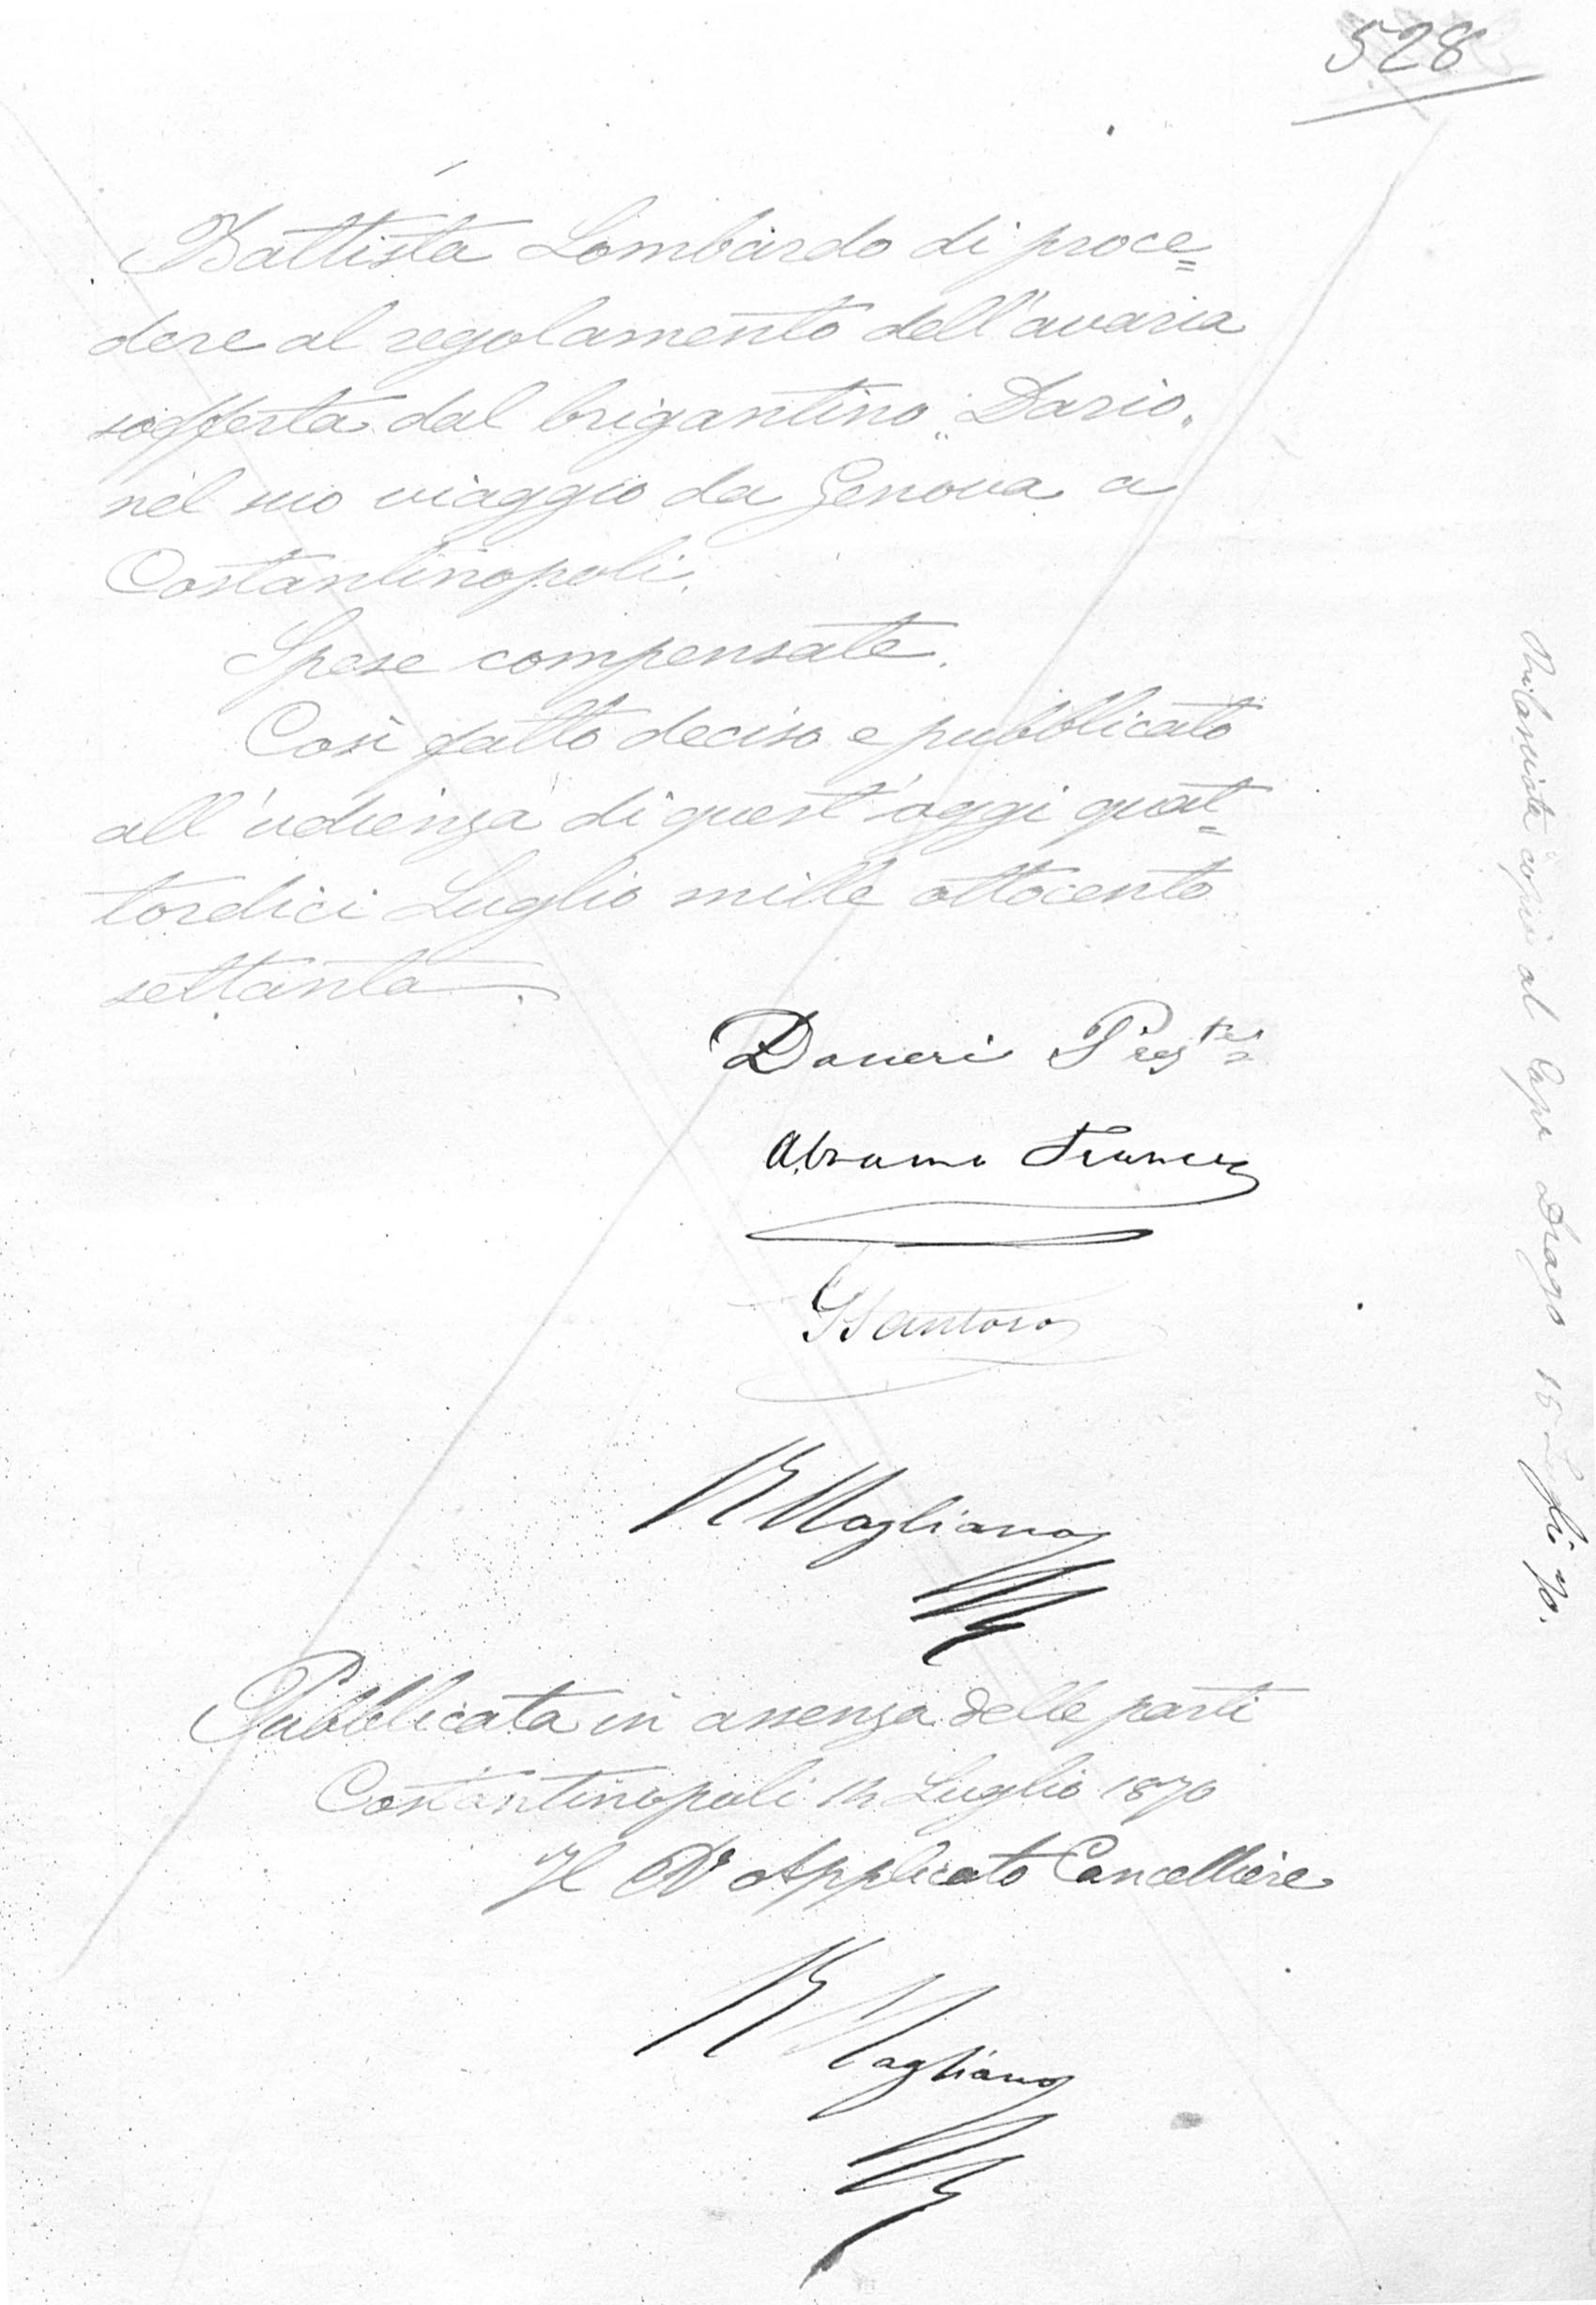 528
Battista Lombardo di proce=
dere al regolamento dell'avaria
sofferta dal brigantino „Dario„
nel suo viaggio da Genova a
Costantinopoli.
Spese compensate.
Così fatto deciso e pubblicato
all'udienza di quest'oggi quat=
tordici Luglio mille ottocento
settanta.
Daneri Pres.te
Abramo
Santoro
R Magliano
Pubblicata in assenza delle parti
Costantinopoli 14 Luglio 1870
Il Rº Applicato Cancelliere
R Magliano
Rilasciata copia al Capº Drago 15 Luglio 70.